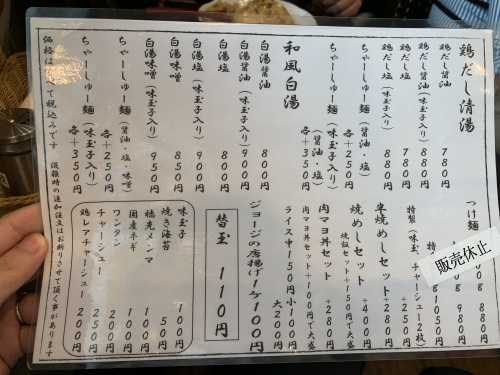 鶏だし清湯
鶏だし醤油 780円
鶏だし醤油(味玉子入り) 880円
鶏だし塩 780円
鶏だし塩(味玉子入り) 880円
ちゃーしゅー麺(醤油・塩) 各+250円
ちゃーしゅー麺(味玉子入り)(醤油・塩) 各+350円
和風白湯
白湯醤油 800円
白湯醤油(味玉子入り) 900円
白湯塩 800円
白湯塩(味玉子入り) 900円
白湯味噌 850円
白湯味噌(味玉子入り) 950円
ちゃーしゅー麺(醤油・塩・味噌) 各+250円
ちゃーしゅー麺(味玉子入り) 各+350円
つけ麺
販売休止
980円
880円
特製 1050円
特製(味玉、チャーシュー2枚) +250円
半焼めしセット +280円
焼めしセット +400円
焼飯セット+150円で大盛
肉マヨ丼セット +280円
肉マヨ丼セット+100円で大盛
ライス中150円 小100円 大200円
ジョージの唐揚げ1ケ100円
替玉 110円
味玉子 100円
焼き海苔 50円
穂先メンマ 100円
国産ネギ 100円
ワンタン 200円
チャーシュー 250円
鶏レアチャーシュー 200円
価格は全て税込みです 混雑時の追加注文はお断りさせて頂く事があります